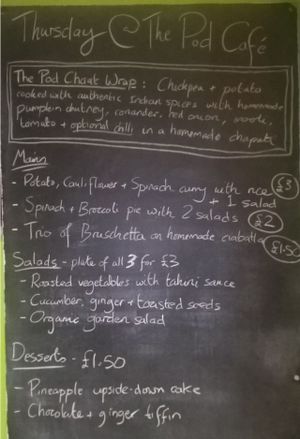 Thursday @ The Pod Café
The Pod Chaat Wrap : Chickpea + potato
cooked with authentic Indian spices with homemade
pumpkin chutney, coriander, red onion,
tomato + optional chilli in a homemade chapati
Mains
- Potato, Cauliflower + Spinach curry with rice £3
+ 1 salad
- Spinach + Broccoli pie with 2 salads £2
- Trio of Bruschetta on homemade ciabatta £1.50
Salads - plate of all 3 for £3
- Roasted vegetables with tahini sauce
- Cucumber, ginger + toasted seeds
- Organic garden salad
Desserts - £1.50
- Pineapple upside-down cake
- Chocolate + ginger tiffin